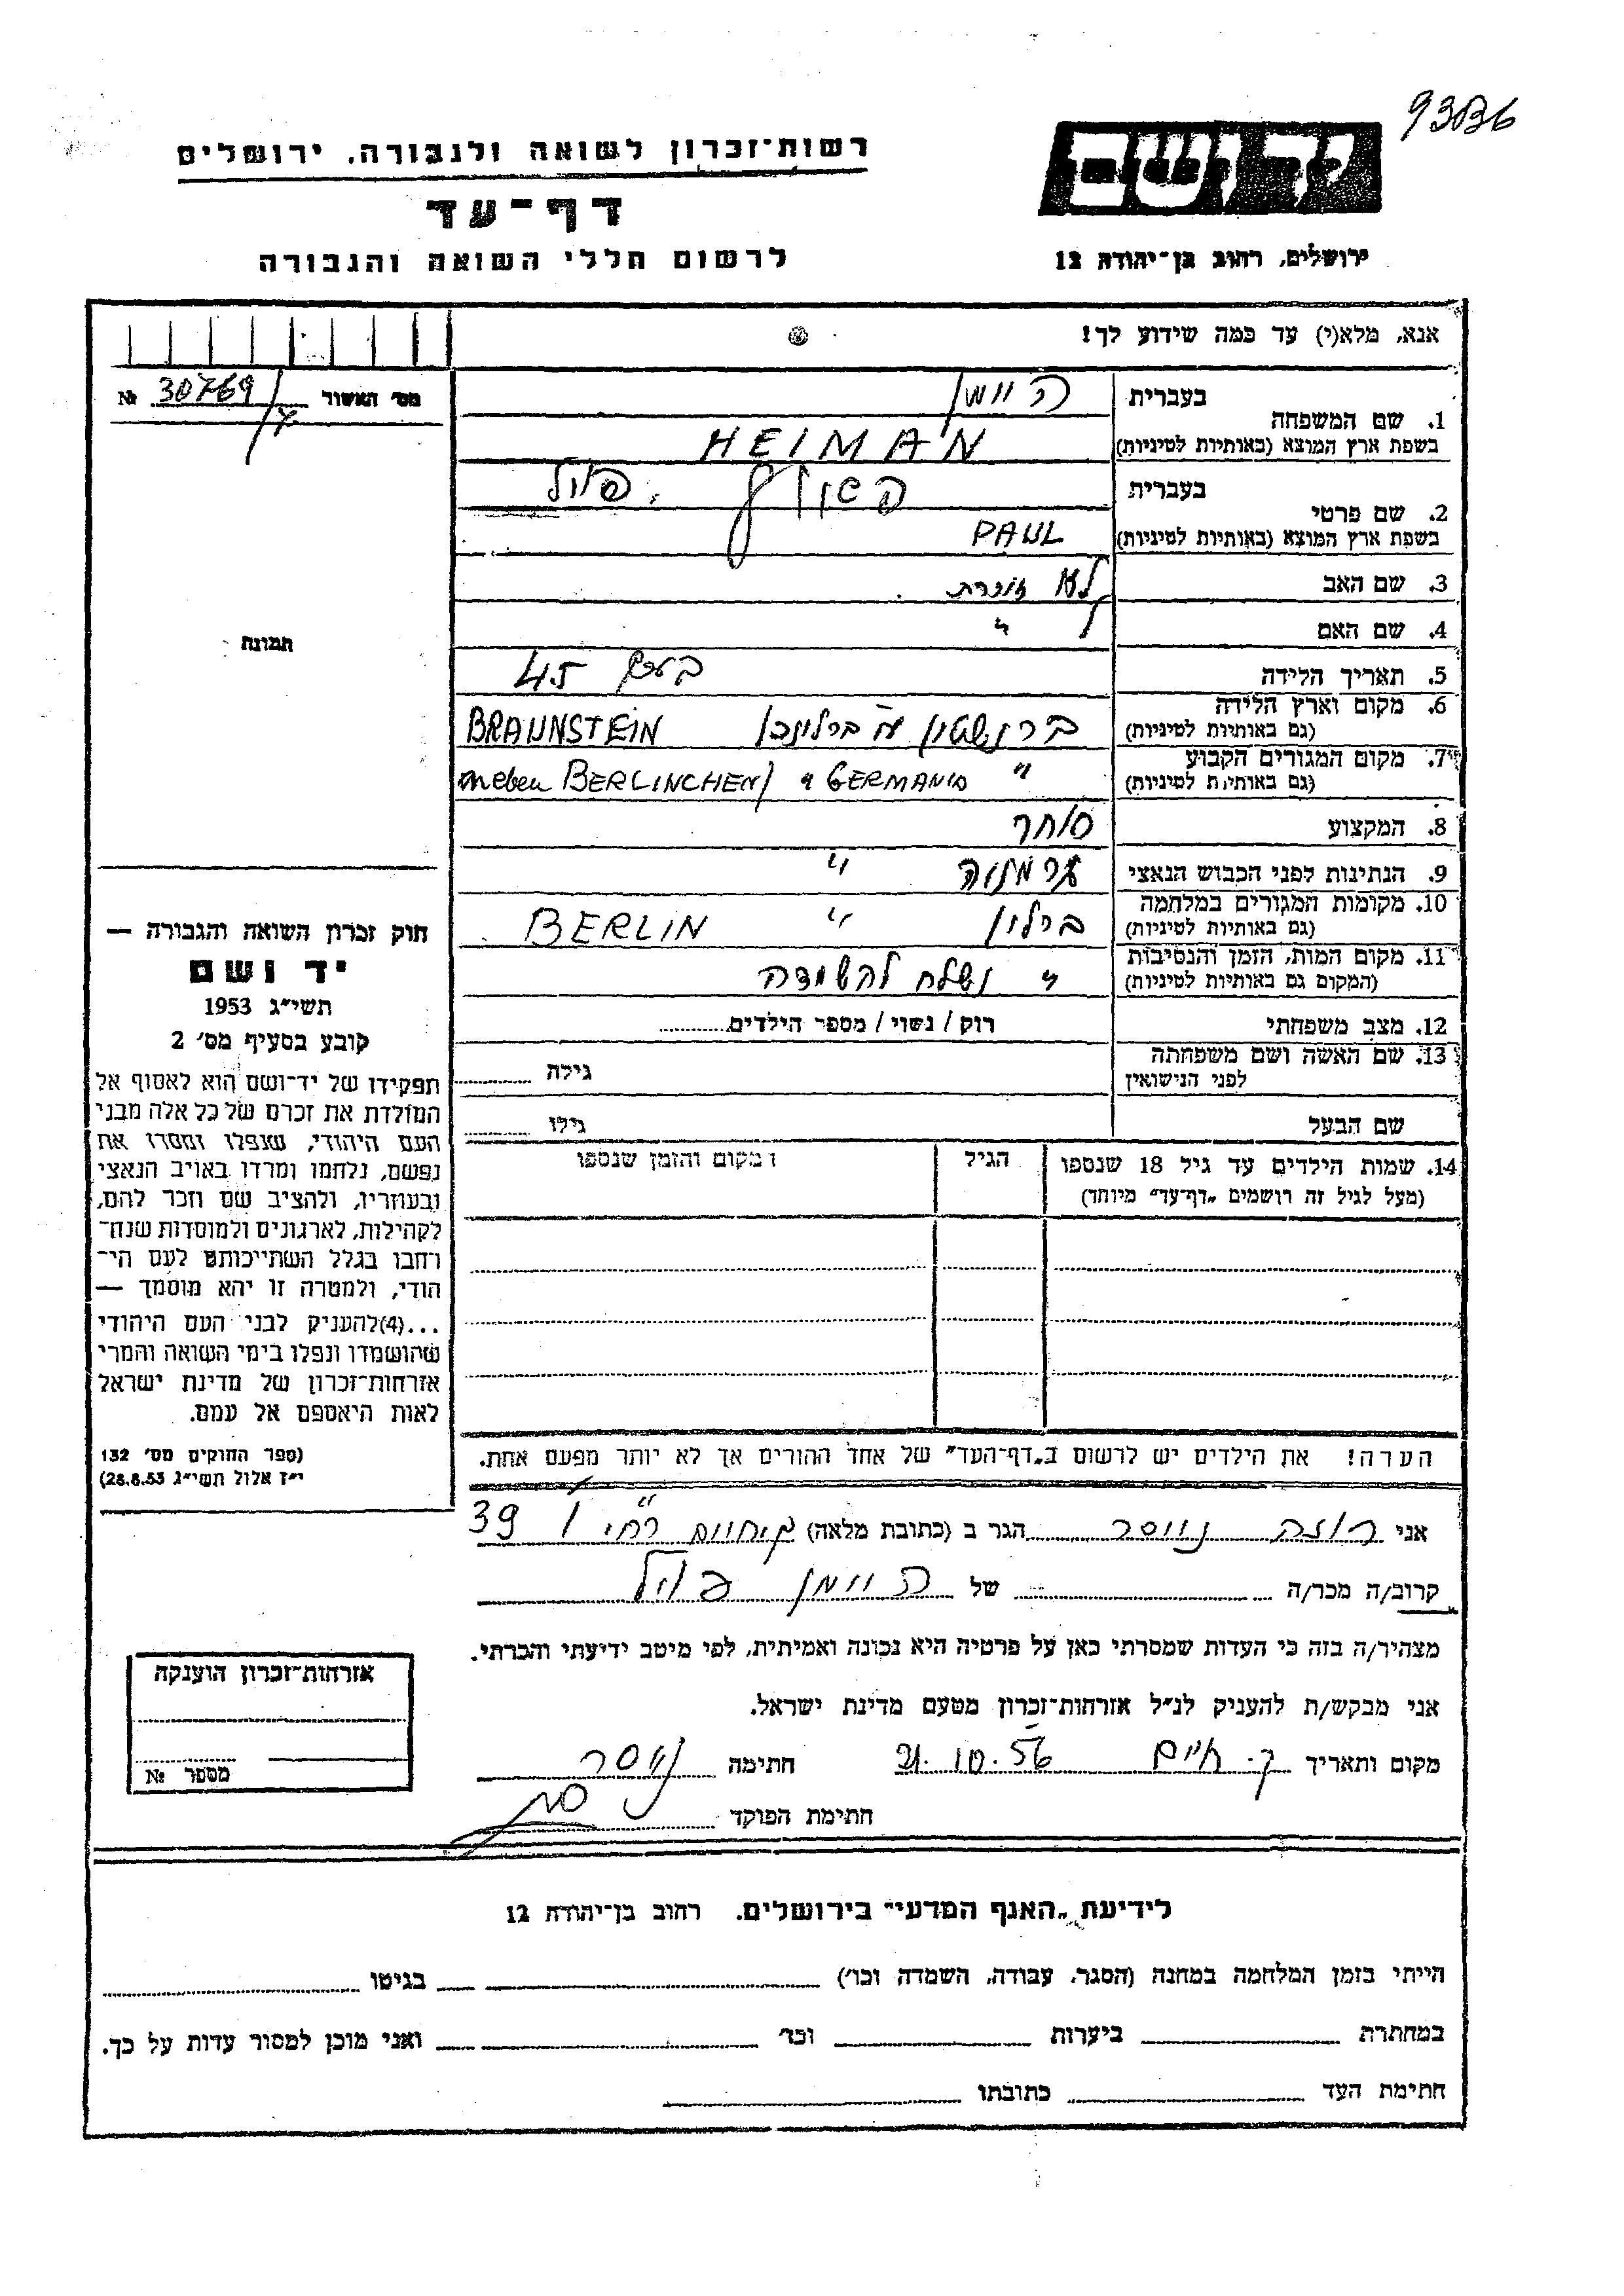 93836
יד ושם
רשות־זכרון לשואה ולגבורה, ירושלים
דף־עד
ירושלים, רחוב בן־יהודה 12
לרשום חללי השואה והגבורה
אנא, מלא(י) עד כמה שידוע לך!
מס׳ האשור № 30769
1. שם המשפחה
בעברית היימן
בשפת ארץ המוצא (באותיות לטיניות) HEIMAN
2. שם פרטי
בעברית פול
בשפת ארץ המוצא (באותיות לטיניות) PAUL
3. שם האב לא זוכרת
4. שם האם "
תמונה
5. תאריך הלידה בערך 45
6. מקום וארץ הלידה
(גם באותיות לטיניות)
ברנשטין ע״י ברלינכן BRAUNSTEIN
7. מקום המגורים הקבוע
(גם באותיות לטיניות)
" GERMANIA " neben BERLINCHEN)
8. המקצוע סוחר
9. הנתינות לפני הכבוש הנאצי גרמניה "
10. מקומות המגורים במלחמה
(גם באותיות לטיניות)
ברלין " BERLIN
11. מקום המות, הזמן והנסיבות
(המקום גם באותיות לטיניות)
" נשלח להשמדה
12. מצב משפחתי רוק / נשוי / מספר הילדים
13. שם האשה ושם משפחתה
לפני הנישואין
גילה
שם הבעל גילו
14. שמות הילדים עד גיל 18 שנספו
(מעל לגיל זה רושמים „דף־עד״ מיוחד)
הגיל
מקום והזמן שנספו
הערה! את הילדים יש לרשום ב„דף־העד״ של אחד ההורים אך לא יותר מפעם אחת.
חוק זכרון השואה והגבורה —
יד ושם
תשי״ג 1953
קובע בסעיף מס׳ 2
תפקידו של יד־ושם הוא לאסוף אל
המולדת את זכרם של כל אלה מבני
העם היהודי, שנפלו ומסרו את
נפשם, נלחמו ומרדו באויב הנאצי
ובעוזריו, ולהציב שם וזכר להם,
לקהילות, לארגונים ולמוסדות שנח־
רחבו בגלל השתייכותם לעם הי־
הודי, ולמטרה זו יהא מוסמך —
...(4)להעניק לבני העם היהודי
שהושמדו ונפלו בימי השואה והמרי
אזרחות־זכרון של מדינת ישראל
לאות היאספם אל עמם.
(ספר החוקים מס׳ 132
י״ז אלול תשי״ג 28.8.53)
אני רוזה נויסר הגר ב (כתובת מלאה) 39
קרוב/ה מכר/ה של היימן פול
מצהיר/ה בזה כי העדות שמסרתי כאן על פרטיה היא נכונה ואמיתית, לפי מיטב ידיעתי והכרתי.
אני מבקש/ת להעניק לנ״ל אזרחות־זכרון מטעם מדינת ישראל.
מקום ותאריך ק. חיים 21.10.56 חתימה נויסר
חתימת הפוקד
אזרחות־זכרון הוענקה
מספר №
לידיעת „האגף המדעי״ בירושלים, רחוב בן־יהודה 12
הייתי בזמן המלחמה במחנה (הסגר, עבודה, השמדה וכו׳) בגיטו
במחתרת ביערות וכו׳ ואני מוכן למסור עדות על כך.
חתימת העד כתובתו